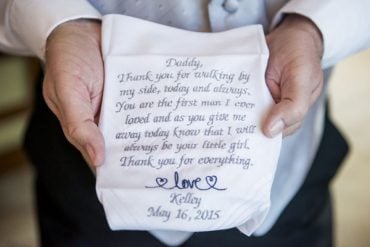 Daddy,
Thank you for walking by
my side, today and always.
You are the first man I ever
loved and as you give me
away today know that I will
always be your little girl.
Thank you for everything.
love
Kelley
May 16, 2015